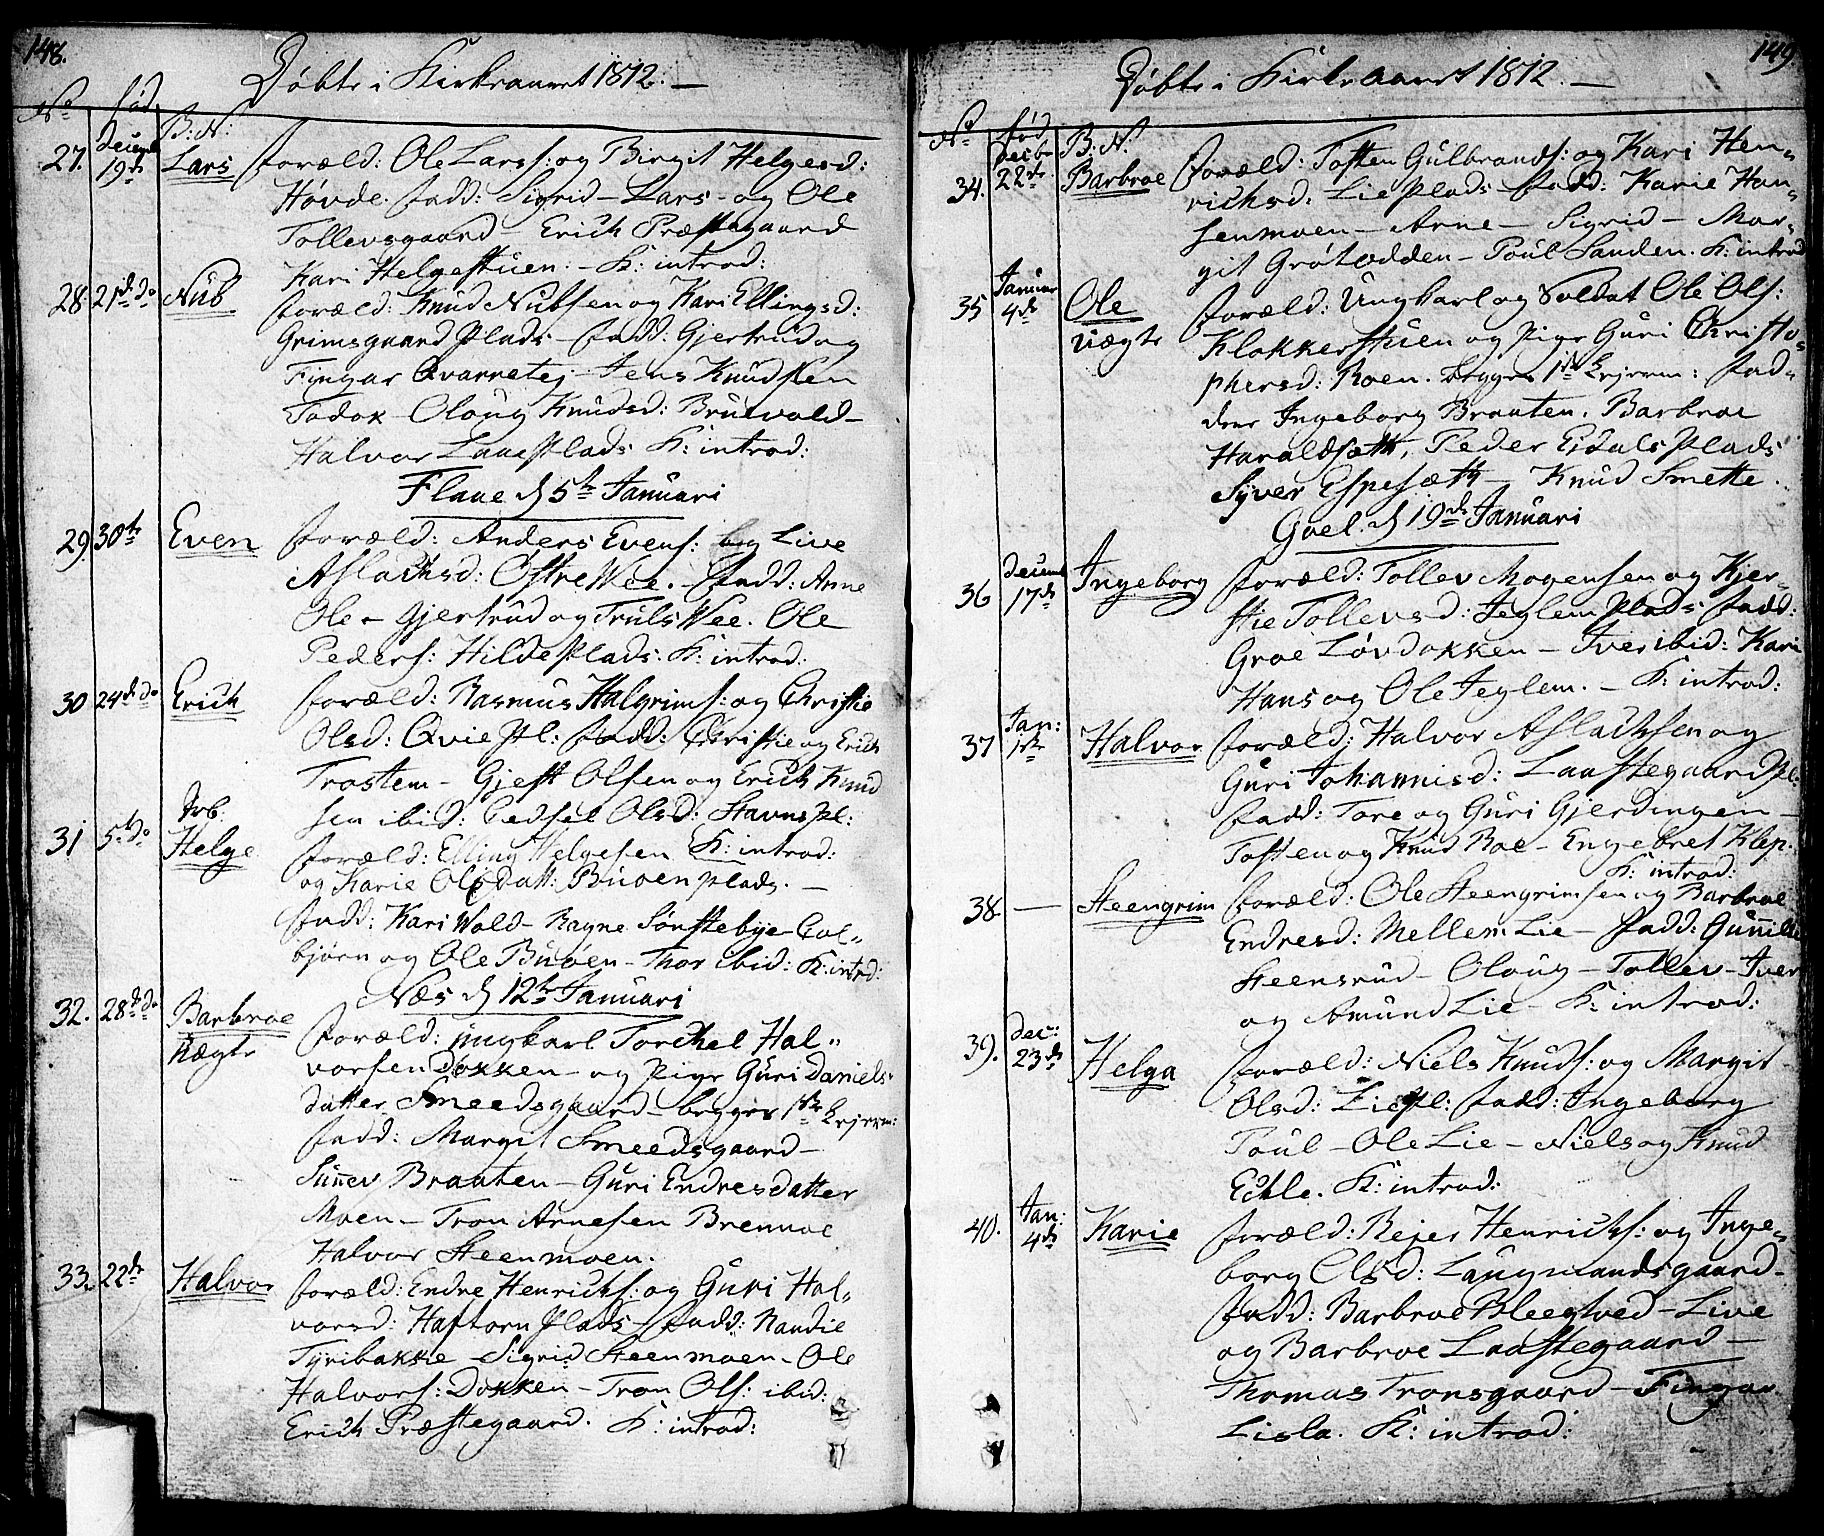 148.
Døbte i Kirkeaaret 1812. —
No fød. B: N:
27. Decemb 19de Lars foræld: Ole Larss: og Birgit Helgesd:
Høvde. fadd: Sigrid – Lars – og Ole
Tollevsgaard – Erich Præstegaard
Kari Helgestuen. – K: introd:
28 21de do Nub foræld: Knud Nubsen og Kari Ellingsd:
Grimsgaard Plads – fadd: Gjertrud og
Fingar Qvarnetej – Jens Knudsen
Todok – Oloug Knudsd: Brusvold –
Halvor Laaes Plads K: introd:
Flaae d 5te Januari
29. 30te Even foræld: Anders Evens: og Live
Aslachsd: Østre Wee. – fadd: Anne
Ole – Gjertrud og Truls Wee. Ole
Peders: Hilde Plads. K: introd:
30 24de do Erich foræld: Rasmus Halgrims: og Christie
Olsd: Qvie Pl: fadd: Christie og Erich
Trostem – Gjest Olsen og Erich Knud
sen ibid: Pedsel Olsd: Stavns Pl:
K: introd:
31 5te do Helge foræld: Elling Helgesen
og Karie Olsdatt: Buoen plads. —
fadd: Kari Wold – Ragne Sønstebye – Col„
bjørn og Ole Buoen – Thor ibid: K: introd:
Næs d 12te Januari
32. 28de do Barbroe foræld: ungkarl Torchel Hal„
Uægte vorsen Dokken – og Pige Guri Daniels
datter Smeedsgaard – begges 1ste Lejerm:
fadd: Margit Smeedsgaard –
Sunnev Braaten – Guri Endresdatter
Moen – Tron Arnesen Brennoe
Halvor Steenmoen.
33. 22de Halvor foræld: Endre Henrichs: og Guri Hal„
vorsd: Haftorn Plads – fadd: Randie
Tyribakke – Sigrid Steenmoen – Ole
Halvors: Dokken – Tron Ols: ibid:
Erich Præstegaard. K: introd:
149
Døbte i Kirkeaaret 1812. —
No fød B: N:
34. Decbr 22de Barbroe foræld: Tosten Gulbrands: og Kari Hen„
richsd: Lie Plads – fadd: Karie Han„
senmoen – Arne – Sigrid – Mar„
git Grøtødden – Poul Sanden. K: introd
35 Januar 4de Ole foræld: Ungkarl og Soldat Ole Ols:
Uægte Klokkerstuen og Pige Guri Christo„
phersd: Roen. begges 1ste Lejerm: fad„
dere Ingeborg Braaten. Barbroe
Haraldsætt, Peder Eidals Plads
Syver Espesætt – Knud Smette.
Goel. d 19de Januari
36 Decemb 17de Ingeborg foræld: Tollev Mogensen og Kjer„
stie Tollevsd: Jeglem Plads fadd:
Groe Løvdokken – Iver ibid: Kari
Hans og Ole Jeglem. – K: introd:
37 Jan: 1ste Halvor foræld: Halvor Aslachsen og
Guri Johannisd: Laastegaard Pl:
fadd: Tore og Guri Gjerdingen –
Tosten og Knud Roe – Engebret Klep.
K: introd:
38 — Steengrim foræld: Ole Steengrimsen og Barbroe
Endresd: Mellem Lie – fadd: Gunnild
Steensrud – Oloug – Tollev – Iver
og Amund Lie – K: introd:
39. Dec: 23de Helga foræld: Niels Knuds: og Margit
Olsd: Lie Pl: fadd: Ingeborg
Poul – Ole Lie – Niels og Knud
Eckle. K: introd:
40. Jan: 4de Karie foræld: Rejer Henrichs: og Inge„
borg Olsd: Laugmandsgaard –
fadd: Barbroe Bleegeved – Live
og Barbroe Laastegaard –
Thomas Tronsgaard – Fingar
Lisla. K: introd: